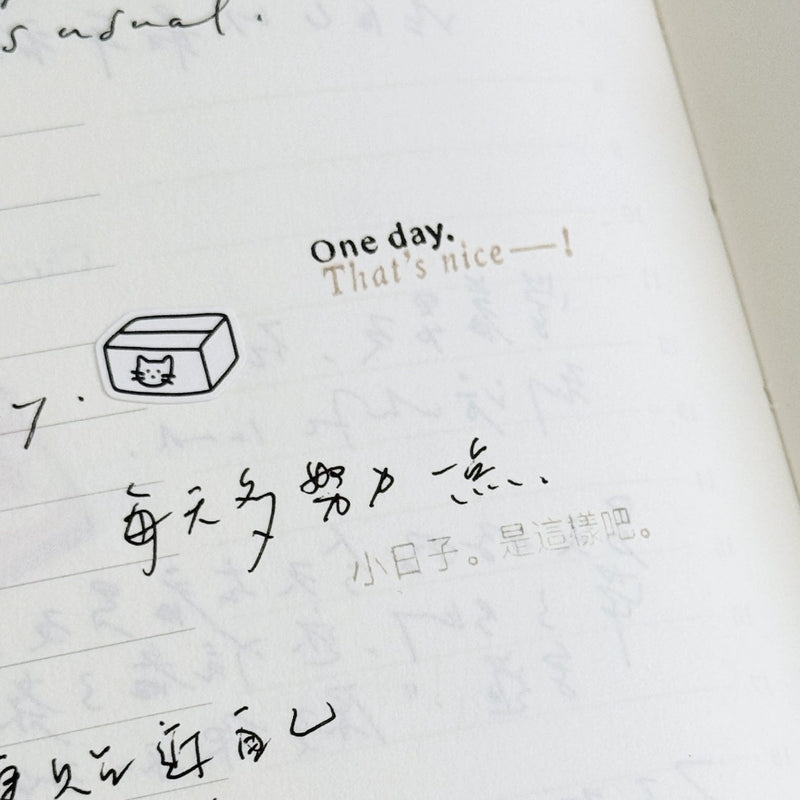 s usual.
One day.
That's nice—!
7.
每天多努力一点.
小日子。是這樣吧。
近自己